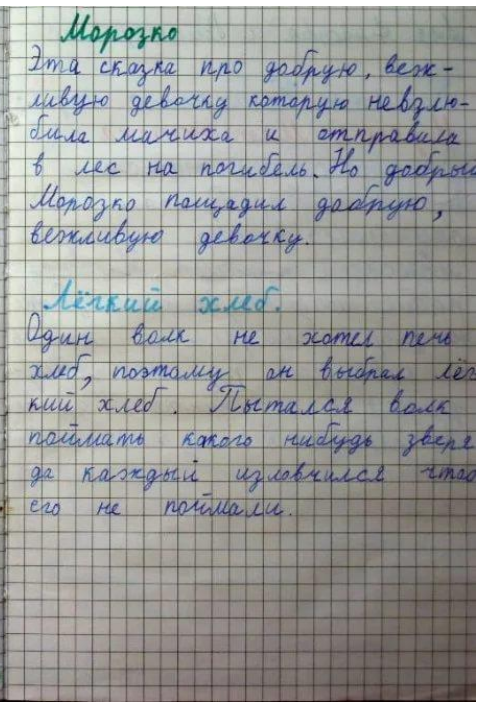 Морозко
Эта сказка про добрую, веж-
ливую девочку которую невзлю-
била мачиха и отправила
в лес на погибель. Но добрый
Морозко пощадил добрую,
вежливую девочку.
Лёгкий хлеб.
Один волк не хотел печь
хлеб, поэтому он выбрал лёг
кий хлеб. Пытался волк
поймать какого нибудь зверя
да каждый изловчился чтоб
его не поймали.